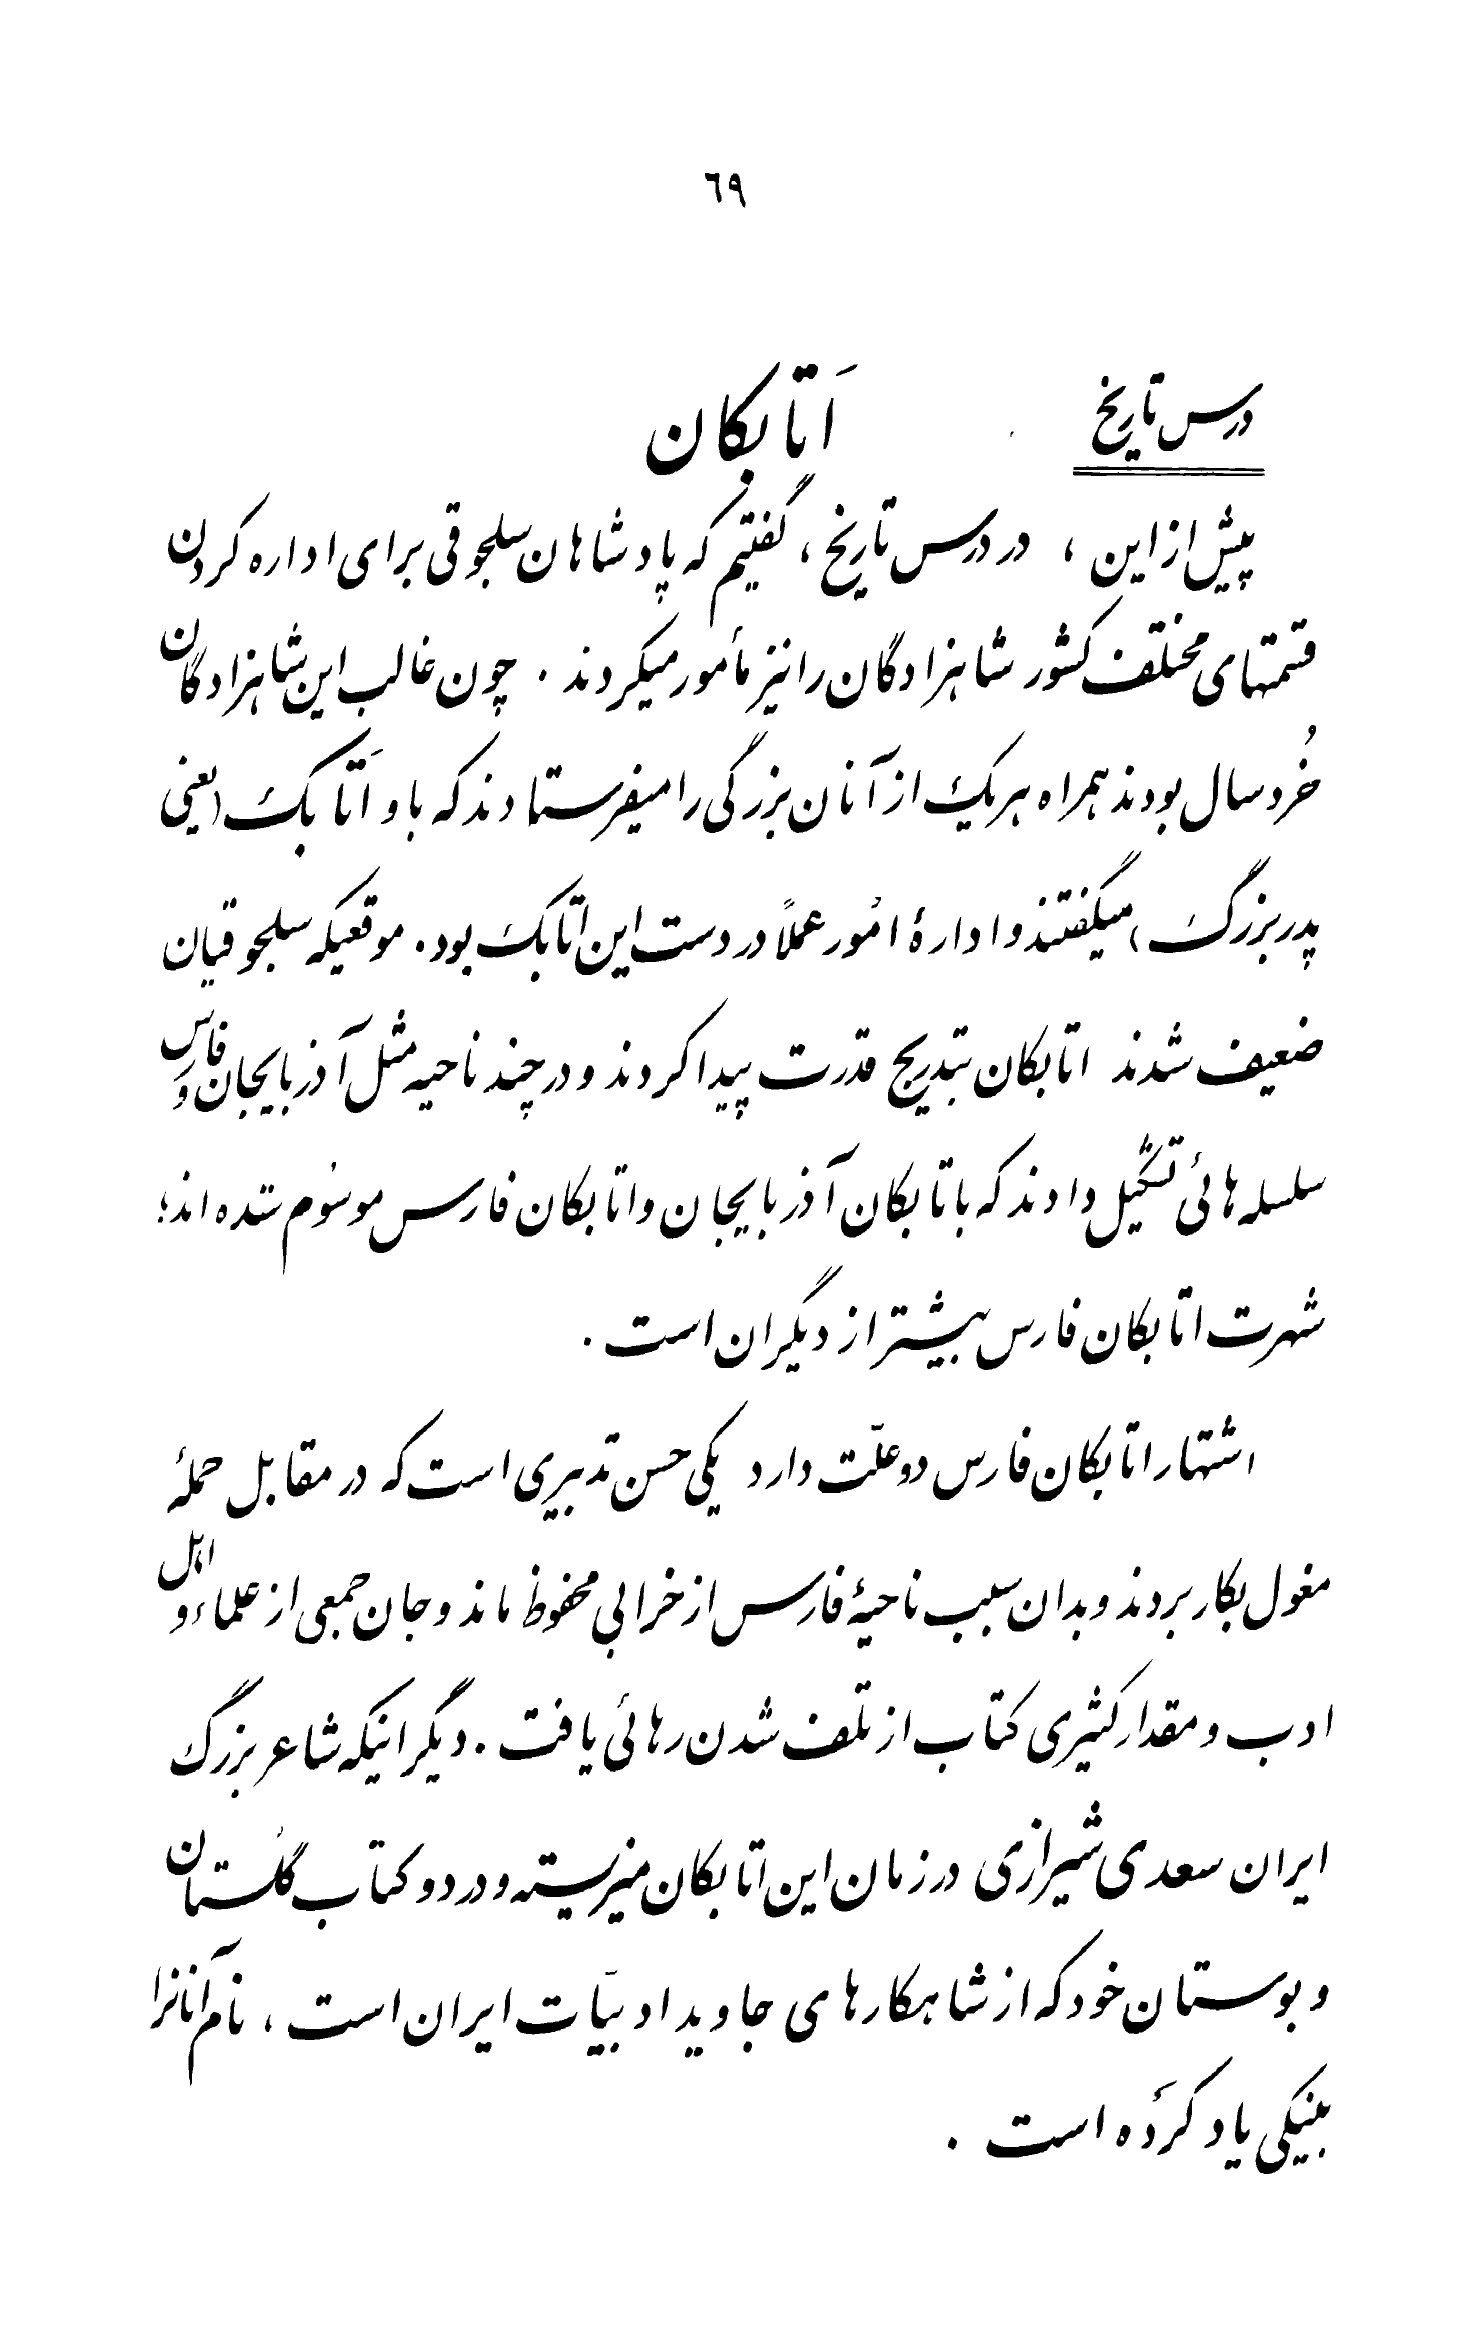 ٦٩
درس تاریخ
اَتابکان
پیش از این ، در درس تاریخ ، گفتیم که پادشاهان سلجوقی برای اداره کردن
قسمتهای مختلف کشور شاهزادگان را نیز مأمور میکردند . چون غالب این شاهزادگان
خُردسال بودند همراه هریک از آنان بزرگی را میفرستادند که باو اَتابک (یعنی
پدر بزرگ) میگفتند و ادارهٔ امُور عملاً در دست این اتابک بود . موقعیکه سلجوقیان
ضعیف شدند اتابکان بتدریج قدرت پیدا کردند و در چند ناحیه مثل آذربایجان و فارس
سلسله‌هائی تشکیل دادند که باتابکان آذربایجان و اتابکان فارس موسوُم شده‌اند؛
شهرت اتابکان فارس بیشتر از دیگران است .
اشتهار اتابکان فارس دو علّت دارد یکی حسن تدبیری است که در مقابل حملهٔ
مغول بکار بردند و بدان سبب ناحیهٔ فارس از خرابی محفوظ ماند و جان جمعی از علماء و اهل
ادب و مقدار کثیری کتاب از تلف شدن رهائی یافت . دیگر اینکه شاعر بزرگ
ایران سعدی شیرازی در زمان این اتابکان میزیسته و در دو کتاب گلُستان
و بوستان خود که از شاهکارهای جاوید ادبیّات ایران است ، نام آنانرا
بنیکی یاد کرَده است .